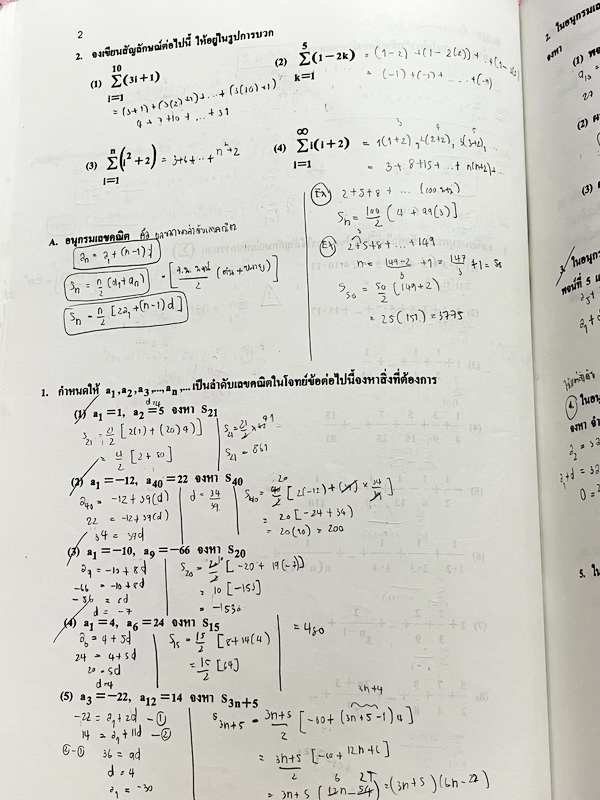 2
2. จงเขียนสัญลักษณ์ต่อไปนี้ ให้อยู่ในรูปการบวก
(1) 10 ∑ i=1 (3i+1)
= (3+1) + (3(2)+1) + ... + (3(10)+1)
4 + 7 + 10 + ... + 31
(2) 5 ∑ k=1 (1-2k) = (1-2) + (1-2(2)) + ...
= (-1) + (-3) + ... + (-9)
(3) n ∑ i=1 (i²+2) = 3+6+...+n²+2
(4) ∞ ∑ i=1 i(i+2) = 1(1+2), 2(2+2), 3(3+2), ...
= 3 + 8 + 15 + ... + n(n+2) + ...
A. อนุกรมเลขคณิต คือ
aₙ = a₁ + (n-1)d
Sₙ = n/2 (a₁ + aₙ)
Sₙ = n/2 [2a₁ + (n-1)d]
Ex 2+5+8+ ...
Sₙ = 100/2 [4 + 99(3)]
Ex 2+5+8+...+149
3
n = 149-2/3 + 1 = 147/3 + 1 = 50
S₅₀ = 50/2 (149+2)
= 25(151) = 3775
1. กำหนดให้ a₁, a₂, a₃, ..., aₙ, ... เป็นลำดับเลขคณิตในโจทย์ข้อต่อไปนี้จงหาสิ่งที่ต้องการ
d=4
(1) a₁ = 1, a₂ = 5 จงหา S₂₁
S₂₁ = 21/2 [2(1) + (20)4]
= 21/2 [2 + 80]
S₂₁ = 861
(2) a₁ = -12, a₄₀ = 22 จงหา S₄₀
a₄₀ = -12 + 39(d)
22 = -12 + 39(d)
34 = 39d
d = 34/39
S₄₀ = 40/2 [2(-12) + (39) × 34/39]
= 20[-24 + 34]
= 20(10) = 200
(3) a₁ = -10, a₉ = -66 จงหา S₂₀
a₉ = -10 + 8d
-66 = -10 + 8d
-56 = 8d
d = -7
S₂₀ = 20/2 [-20 + 19(-7)]
= 10[-153]
= -1530
(4) a₁ = 4, a₆ = 24 จงหา S₁₅
a₆ = 4 + 5d
24 = 4 + 5d
20 = 5d
d = 4
S₁₅ = 15/2 [8 + 14(4)]
= 15/2 [64]
= 480
(5) a₃ = -22, a₁₂ = 14 จงหา S₃ₙ₊₅
-22 = a₁ + 2d -①
14 = a₁ + 11d -②
②-① 36 = 9d
d = 4
a₁ = -30
3n+4
S₃ₙ₊₅ = 3n+5/2 [-60 + (3n+5-1)4]
= 3n+5/2 [-60 + 12n+16]
= (3n+5)(6n-22)
2. ในอนุกรมเลข
จงหา
(1)
(2)
(3)
3. ในอนุกร
พจน์ที่ 5
4. ในอนุ
จงหา
5. ใน